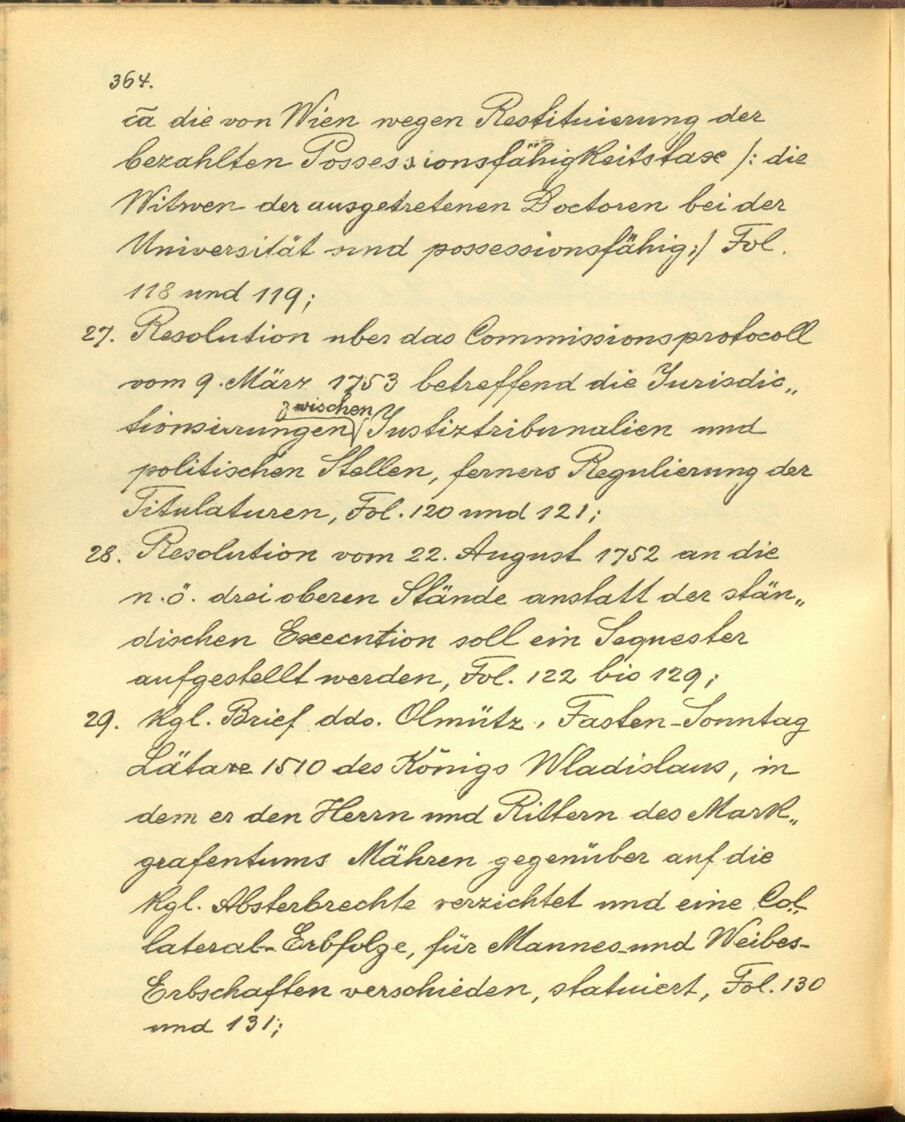 364.
c̄a die von Wien wegen Restituierung der
bezahlten Possessionsfähigkeitstaxe /: die
Witwen der ausgetretenen Doctoren bei der
Universität sind possessionsfähig:/ Fol.
118 und 119;
27. Resolution uber das Commissionsprotocoll
vom 9. März 1753 betreffend die Jurisdic„
zwischen
tionsirrungen Justiztribunalien und
politischen Stellen, ferners Regulierung der
Titulaturen, Fol. 120 und 121;
28. Resolution vom 22. August 1752 an die
n.ö. drei oberen Stände anstatt der stän„
dischen Execution soll ein Sequester
aufgestellt werden, Fol. 122 bis 129;
29. Kgl. Brief ddo. Olmütz, Fasten-Sonntag
Lätare 1510 des Königs Wladislaus, in
dem er den Herrn und Rittern des Mark„
grafentums Mähren gegenüber auf die
Kgl. Absterbrechte verzichtet und eine Col„
lateral-Erbfolge, für Mannes-und Weibes-
Erbschaften verschieden, statuiert, Fol. 130
und 131;